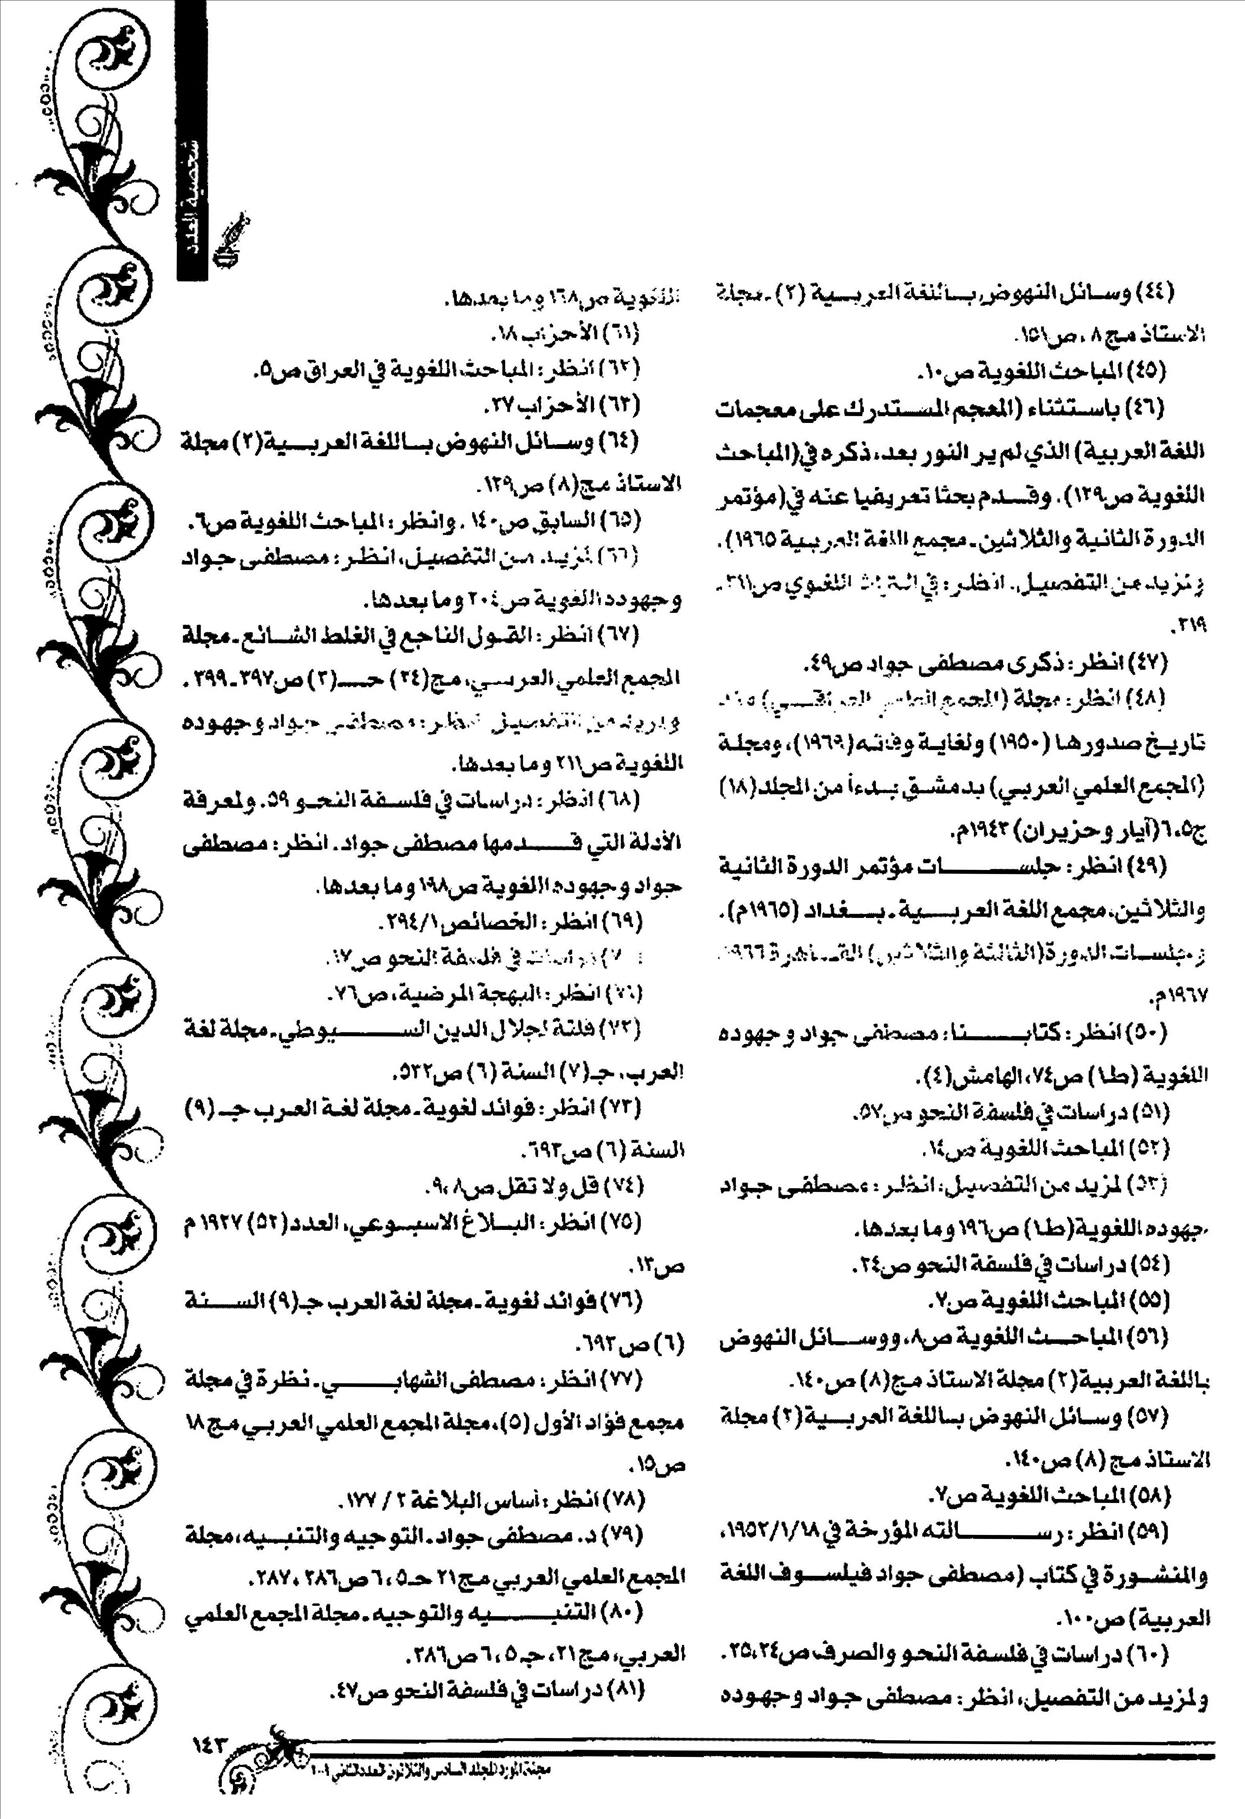 شخصية العدد
(٤٤) وسائل النهوض باللغة العربية (٢) ـ مجلة
الاستاذ مج٨، ص١٥١.
(٤٥) المباحث اللغوية ص١٠.
(٤٦) باستثناء (المعجم المستدرك على معجمات
اللغة العربية) الذي لم ير النور بعد، ذكره في(المباحث
اللغوية ص١٢٩). وقدم بحثا تعريفيا عنه في(مؤتمر
الدورة الثانية والثلاثين ـ مجمع اللغة العربية ١٩٦٥).
ولمزيد من التفصيل. انظر: في التراث اللغوي ص٢١١ـ
٢١٩.
(٤٧) انظر: ذكرى مصطفى جواد ص٤٩.
(٤٨) انظر: مجلة (المجمع العلمي العراقي) منذ
تاريخ صدورها (١٩٥٠) ولغاية وفاته(١٩٦٩)، ومجلة
(المجمع العلمي العربي) بدمشق بدءاً من المجلد(١٨)
ج٥،٦(آيار وحزيران) ١٩٤٣م.
(٤٩) انظر: جلسات مؤتمر الدورة الثانية
والثلاثين، مجمع اللغة العربية ـ بغداد (١٩٦٥م).
وجلسات الدورة(الثالثة والثلاثين) القاهرة ١٩٦٦ـ
١٩٦٧م.
(٥٠) انظر: كتابنا: مصطفى جواد وجهوده
اللغوية (ط١) ص٧٤، الهامش(٤).
(٥١) دراسات في فلسفة النحو ص٥٧.
(٥٢) المباحث اللغوية ص١٤.
(٥٣) لمزيد من التفصيل: انظر: مصطفى جواد
وجهوده اللغوية(ط١) ص١٩٦ وما بعدها.
(٥٤) دراسات في فلسفة النحو ص٢٤.
(٥٥) المباحث اللغوية ص٧.
(٥٦) المباحث اللغوية ص٨، ووسائل النهوض
باللغة العربية(٢) مجلة الاستاذ مج(٨) ص١٤٠.
(٥٧) وسائل النهوض باللغة العربية(٢) مجلة
الاستاذ مج (٨) ص١٤٠.
(٥٨) المباحث اللغوية ص٧.
(٥٩) انظر: رسالته المؤرخة في ١٩٥٢/١/١٨،
والمنشورة في كتاب (مصطفى جواد فيلسوف اللغة
العربية) ص١٠٠.
(٦٠) دراسات في فلسفة النحو والصرف ص٢٤،٢٥.
ولمزيد من التفصيل، انظر: مصطفى جواد وجهوده
اللغوية ص١٦٨ وما بعدها.
(٦١) الأحزاب ١٨.
(٦٢) انظر: المباحث اللغوية في العراق ص٥.
(٦٣) الأحزاب ٣٧.
(٦٤) وسائل النهوض باللغة العربية(٢) مجلة
الاستاذ مج(٨) ص١٣٩.
(٦٥) السابق ص١٤٠ . وانظر: المباحث اللغوية ص٦.
(٦٦) لمزيد من التفصيل، انظر: مصطفى جواد
وجهوده اللغوية ص٢٠٤ وما بعدها.
(٦٧) انظر: القول الناجع في الغلط الشائع ـ مجلة
المجمع العلمي العربي، مج(٢٤) حـ(٣) ص٣٩٧ـ٣٩٩ .
ولمزيد من التفصيل انظر: مصطفى جواد وجهوده
اللغوية ص٢١١ وما بعدها.
(٦٨) انظر: دراسات في فلسفة النحو ٥٩. ولمعرفة
الأدلة التي قدمها مصطفى جواد. انظر: مصطفى
جواد وجهوده اللغوية ص١٩٨ وما بعدها.
(٦٩) انظر: الخصائص ٢٩٤/١.
(٧٠) دراسات في فلسفة النحو ص١٧.
(٧١) انظر: البهجة المرضية، ص٧٦.
(٧٢) فلتة لجلال الدين السيوطي ـ مجلة لغة
العرب، جـ(٧) السنة (٦) ص٥٣٢.
(٧٣) انظر: فوائد لغوية ـ مجلة لغة العرب جـ (٩)
السنة (٦) ص٦٩٣.
(٧٤) قل ولا تقل ص٨،٩.
(٧٥) انظر: البلاغ الاسبوعي، العدد(٥٢) ١٩٢٧ م
ص١٣.
(٧٦) فوائد لغوية ـ مجلة لغة العرب جـ(٩) السنة
(٦) ص٦٩٣.
(٧٧) انظر: مصطفى الشهابي ـ نظرة في مجلة
مجمع فؤاد الأول (٥)، مجلة المجمع العلمي العربي مج١٨
ص١٥.
(٧٨) انظر: أساس البلاغة ٢ / ١٧٧.
(٧٩) د. مصطفى جواد ـ التوجيه والتنبيه، مجلة
المجمع العلمي العربي مج٢١ حـ٥، ٦ ص٢٨٦ ،٢٨٧.
(٨٠) التنبيه والتوجيه ـ مجلة المجمع العلمي
العربي، مج٢١، جـ٥، ٦ ص٢٨٦.
(٨١) دراسات في فلسفة النحو ص٤٧.
١٤٣
مجلة المورد المجلد السادس والثلاثون العدد الثاني ٢٠٠٩